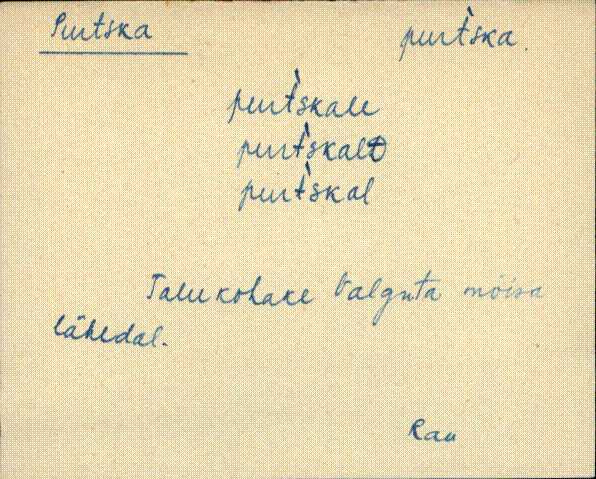 Purtska purt̀ska.
purt̀skale
purt̀skalt
purt̀skal
Talukohake Valguta mõisa
lähedal.
Ran